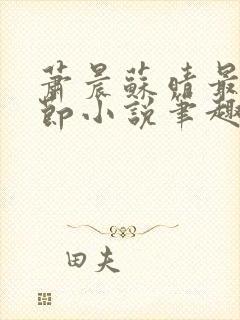 蕭晨蘇晴最
節小說筆趣
田夫